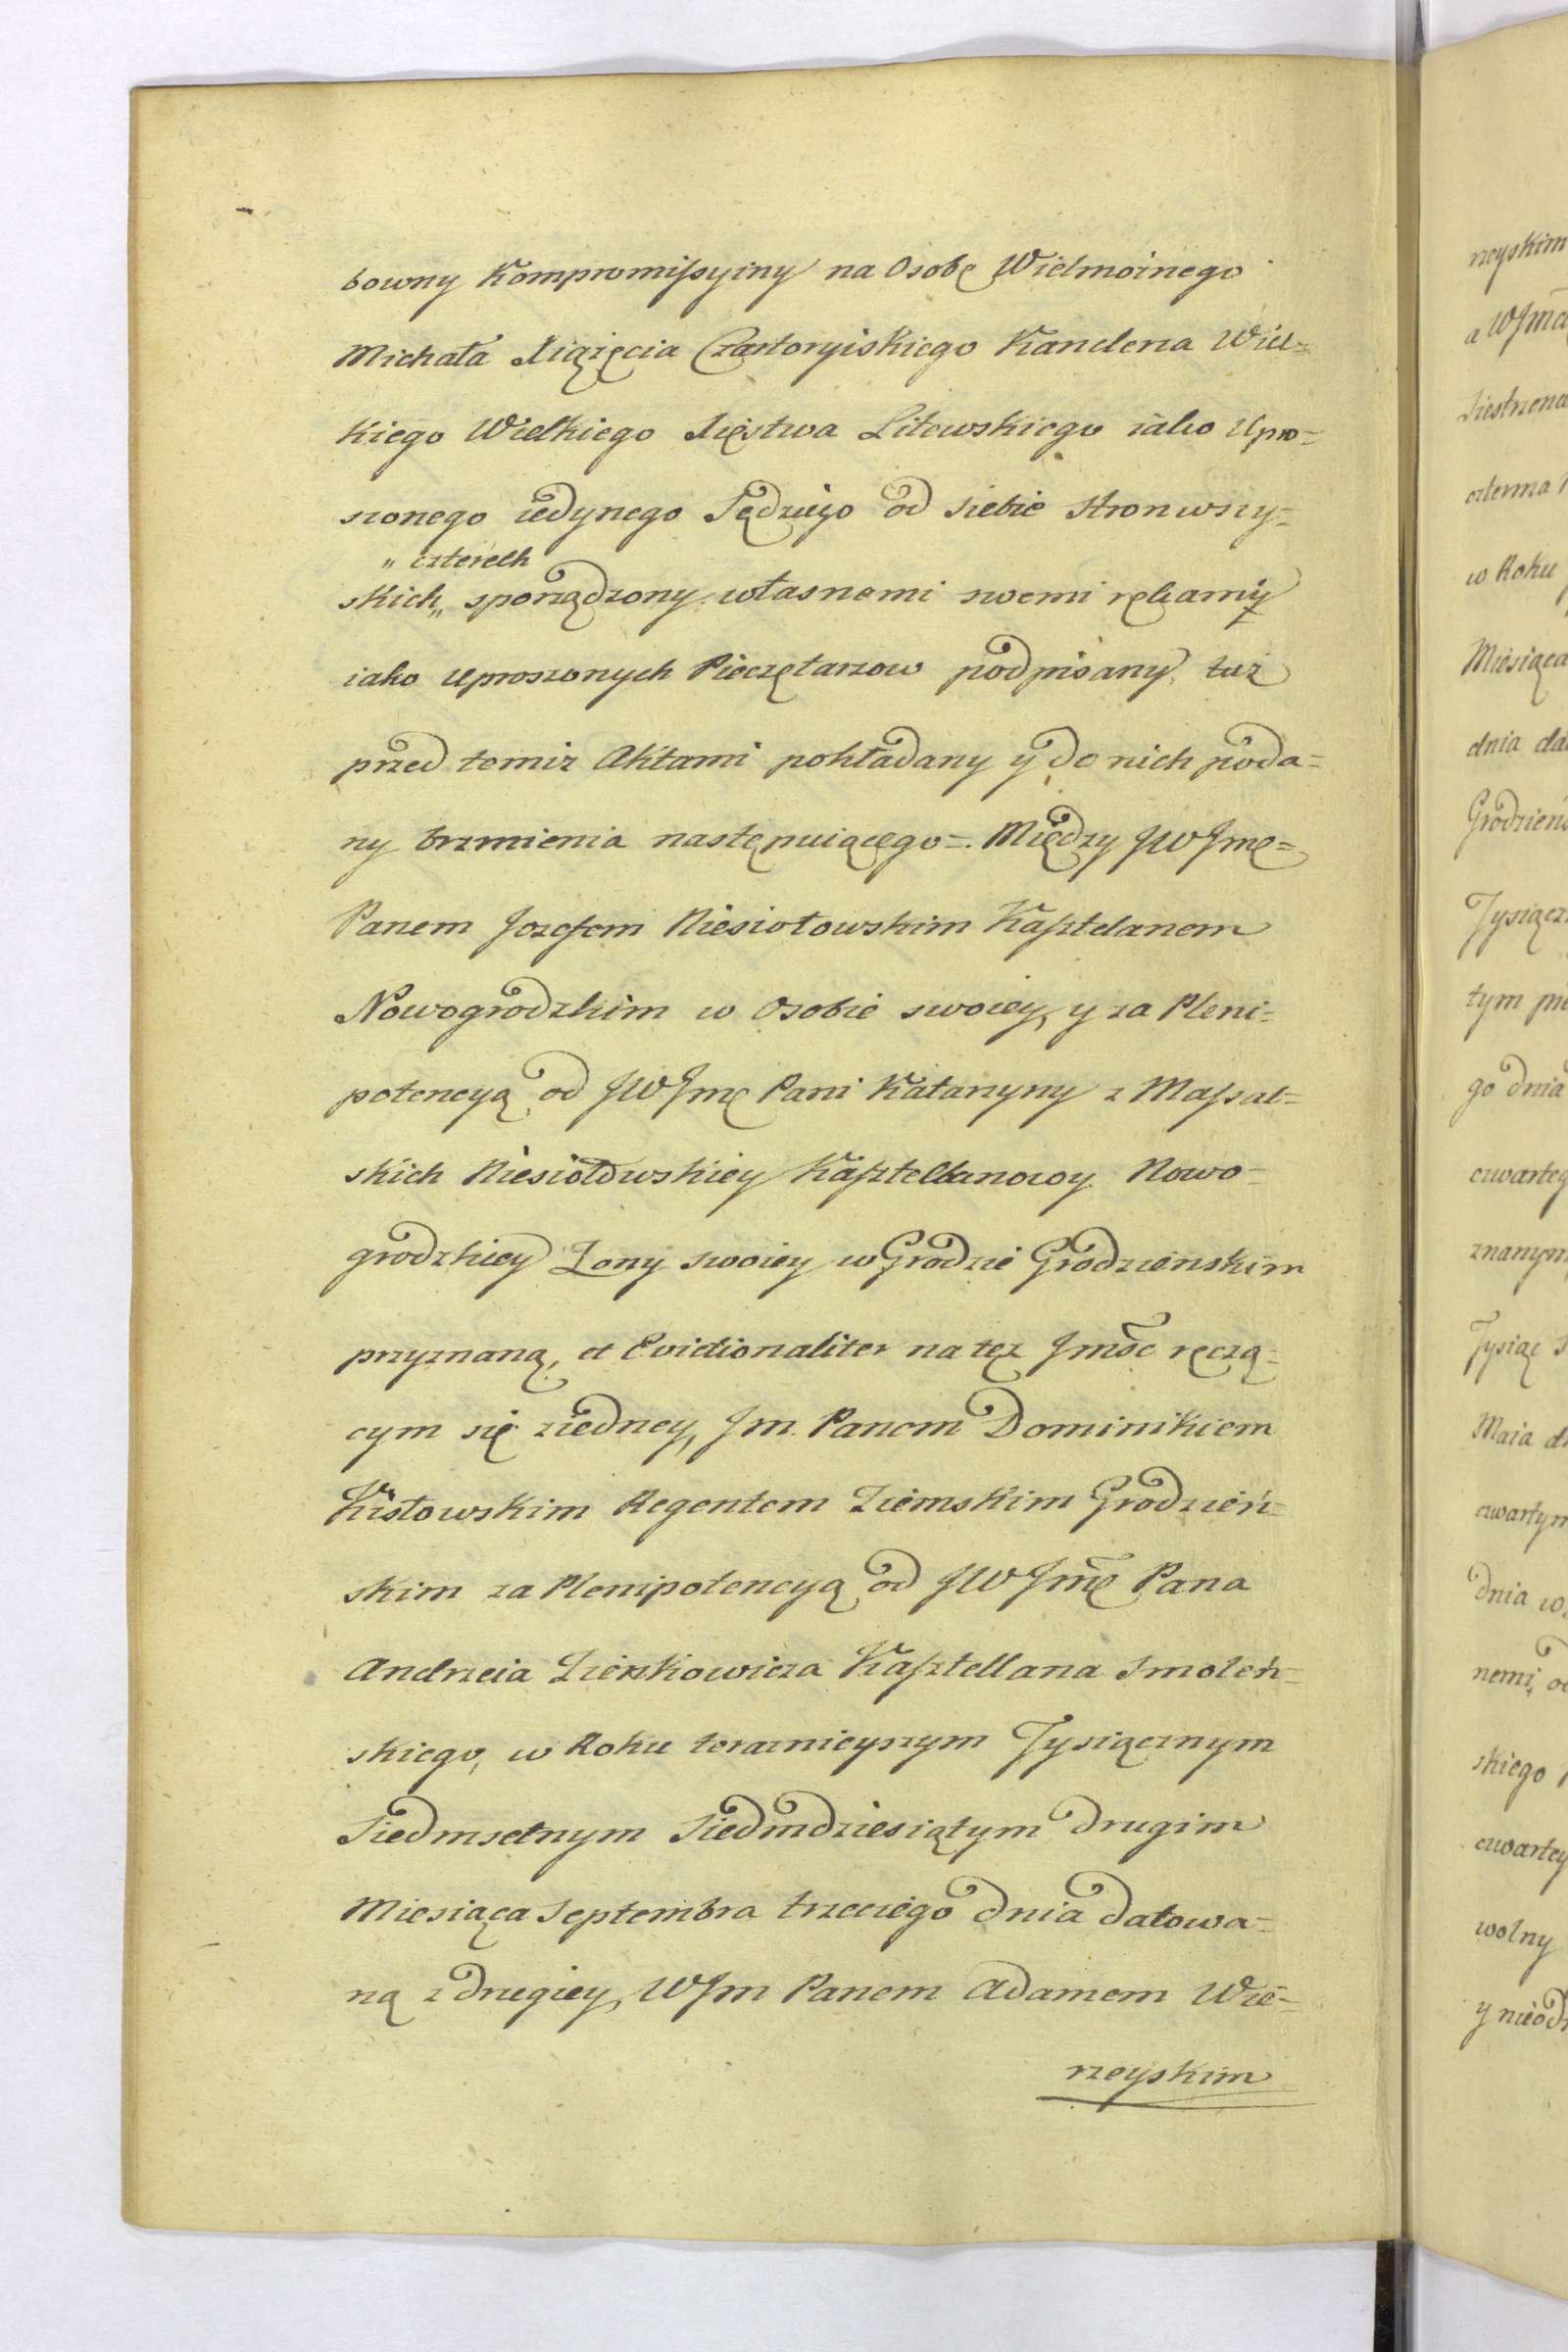 bowny Kompromissyiny na Osobę Wielmoinego
Michała Xiążęcia Czartoryiskiego Kanclerza Wiel=
kiego Wielkiego Xięstwa Litewskiego iako Upro=
szonego iedynego Sędziego od siebie stron wszy=
„ czterech
skich„ sporządzony własnemi swemi rękamy
iako uproszonych Pieczętarzow podpisany tuż
przed temiż Aktami pokładany y do nich poda=
ny brzmienia następuiącego=. Między JWJmę=
Panem Jozefem Niesiołowskim Kasztelanem
Nowogrodzkim w Osobie swoiey, y za Pleni=
potencyą od JWJmę Pani Katarzyny z Massal=
skich Niesiołowskiey Kasztellanowy Nowo=
grodzkiey Żony swoiey w Grodzie Grodzienskim
przyznaną, et Evictionaliter na też Jmość ręczą=
cym się ziedney, Jm. Panem Dominikiem
Kisłowskim Regentem Ziemskim Grodzień=
skim za Plenipotencyą od JWJmę Pana
Andrzeia Zienkowicza Kasztellana Smoleń=
skiego, w Roku teraznieyszym Tysiącznym
Siedmsetnym Siedmdziesiątym drugim
Miesiąca Septembra trzeciego dnia datowa=
ną z drugiey, WJm Panem Adamem Wie=
rzeyskim
rzeyskim
a WJma
Siestrzena
czterma
w Roku
Miesiąca
dnia da
Grodzień
Tysiącz
tym pi
go dnia
czwarteg
znanym
Tysiąc s
Maia d
czwartym
dnia w
nemi, od
skiego
czwartey
wolny
y nieod